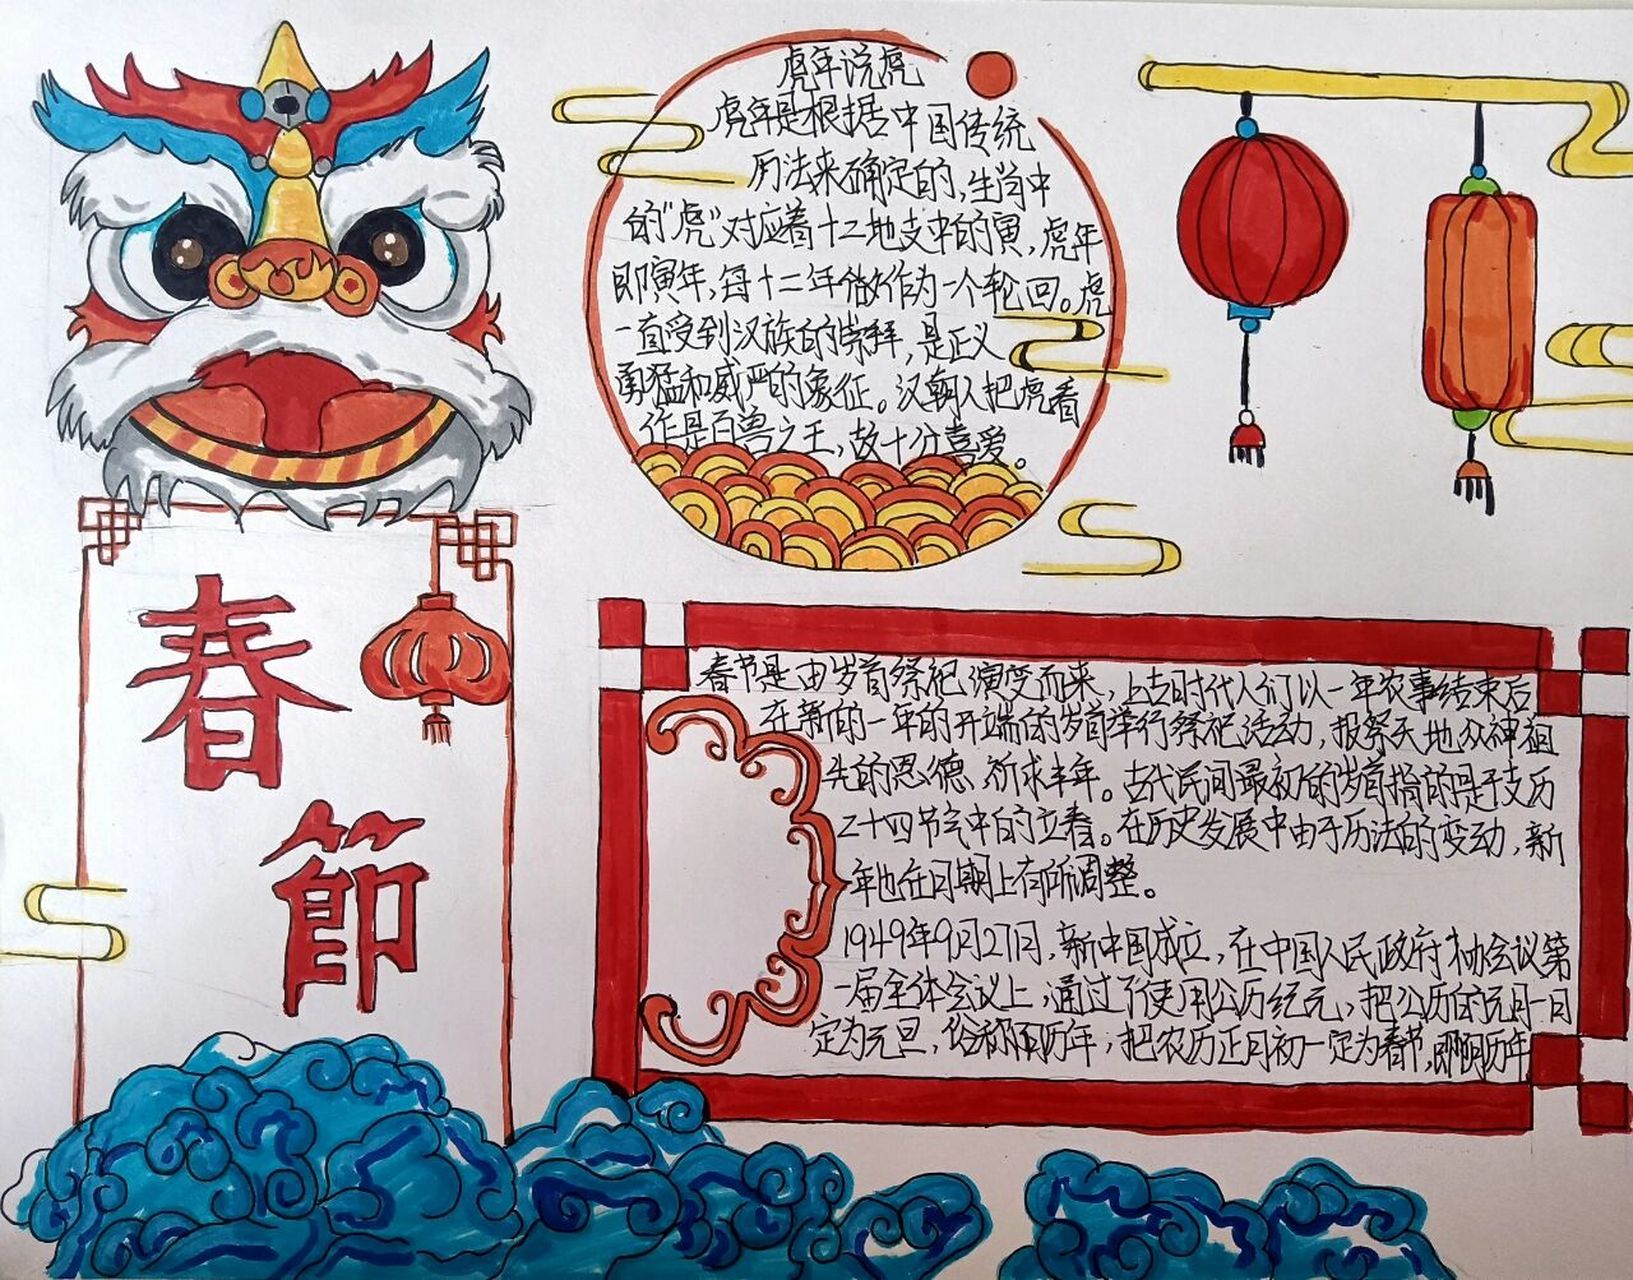 春
節
虎年说虎
虎年是根据中国传统
历法来确定的,生肖中
的"虎"对应着十二地支中的寅,虎年
即寅年,每十二年做作为一个轮回。虎
一直受到汉族的崇拜,是正义
勇猛和威严的象征。汉朝人把虎看
作是百兽之王,故十分喜爱。
春节是由岁首祭祀演变而来,上古时代人们以一年农事结束后
在新的一年的开端的岁首举行祭祀活动,报祭天地众神祖
先的恩德,祈求丰年。古代民间最初的岁首指的是干支历
二十四节气中的立春。在历史发展中由于历法的变动,新
年也在日期上有所调整。
1949年9月27日,新中国成立,在中国人民政府协会议第
一届全体会议上,通过了使用公历纪元,把公历的元月一日
定为元旦,俗称阳历年;把农历正月初一定为春节,即阴历年